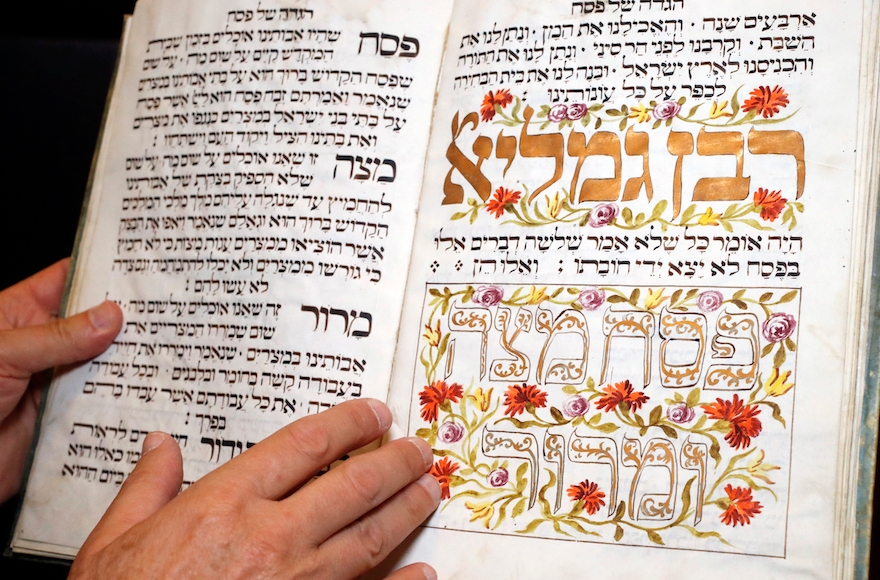 הגדה של פסח
ארבעים שנה · והאכילנו את המן · ונתן לנו את
השבת · וקרבנו לפני הר סיני · ונתן לנו את התורה
והכניסנו לארץ ישראל · ובנה לנו את בית הבחירה
לכפר על כל עונותינו :
רבן גמליאל
היה אומר כל שלא אמר שלשה דברים אלו
בפסח לא יצא ידי חובתו : ואלו הן
פסח מצה
ומרור
הגדה של פסח
פסח שהיו אבותינו אוכלים בזמן שבית
המקדש קיים על שום מה · על שום
שפסח הקדוש ברוך הוא על בתי אבותינו במצרים
שנאמר ואמרתם זבח פסח הוא ליי אשר פסח
על בתי בני ישראל במצרים בנגפו את מצרים
ואת בתינו הציל ויקוד העם וישתחוו :
מצה זו שאנו אוכלים על שום מה · על שום
שלא הספיק בצקת של אבותינו
להחמיץ עד שנגלה עליהם מלך מלכי המלכים
הקדוש ברוך הוא וגאלם שנאמר ויאפו את הבצק
אשר הוציאו ממצרים עגות מצות כי לא חמץ
כי גורשו ממצרים ולא יכלו להתמהמה וגם צדה
לא עשו להם :
מרור זה שאנו אוכלים על שום מה · על
שום שמררו המצריים את
אבותינו במצרים · שנאמר וימררו את חייהם
בעבודה קשה בחומר ובלבנים · ובכל עבודה
את כל עבודתם אשר עבדו בהם
בפרך :
ודור לראות
כאלו הוא
ביום ההוא